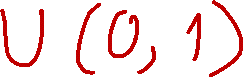 U (0, 1)